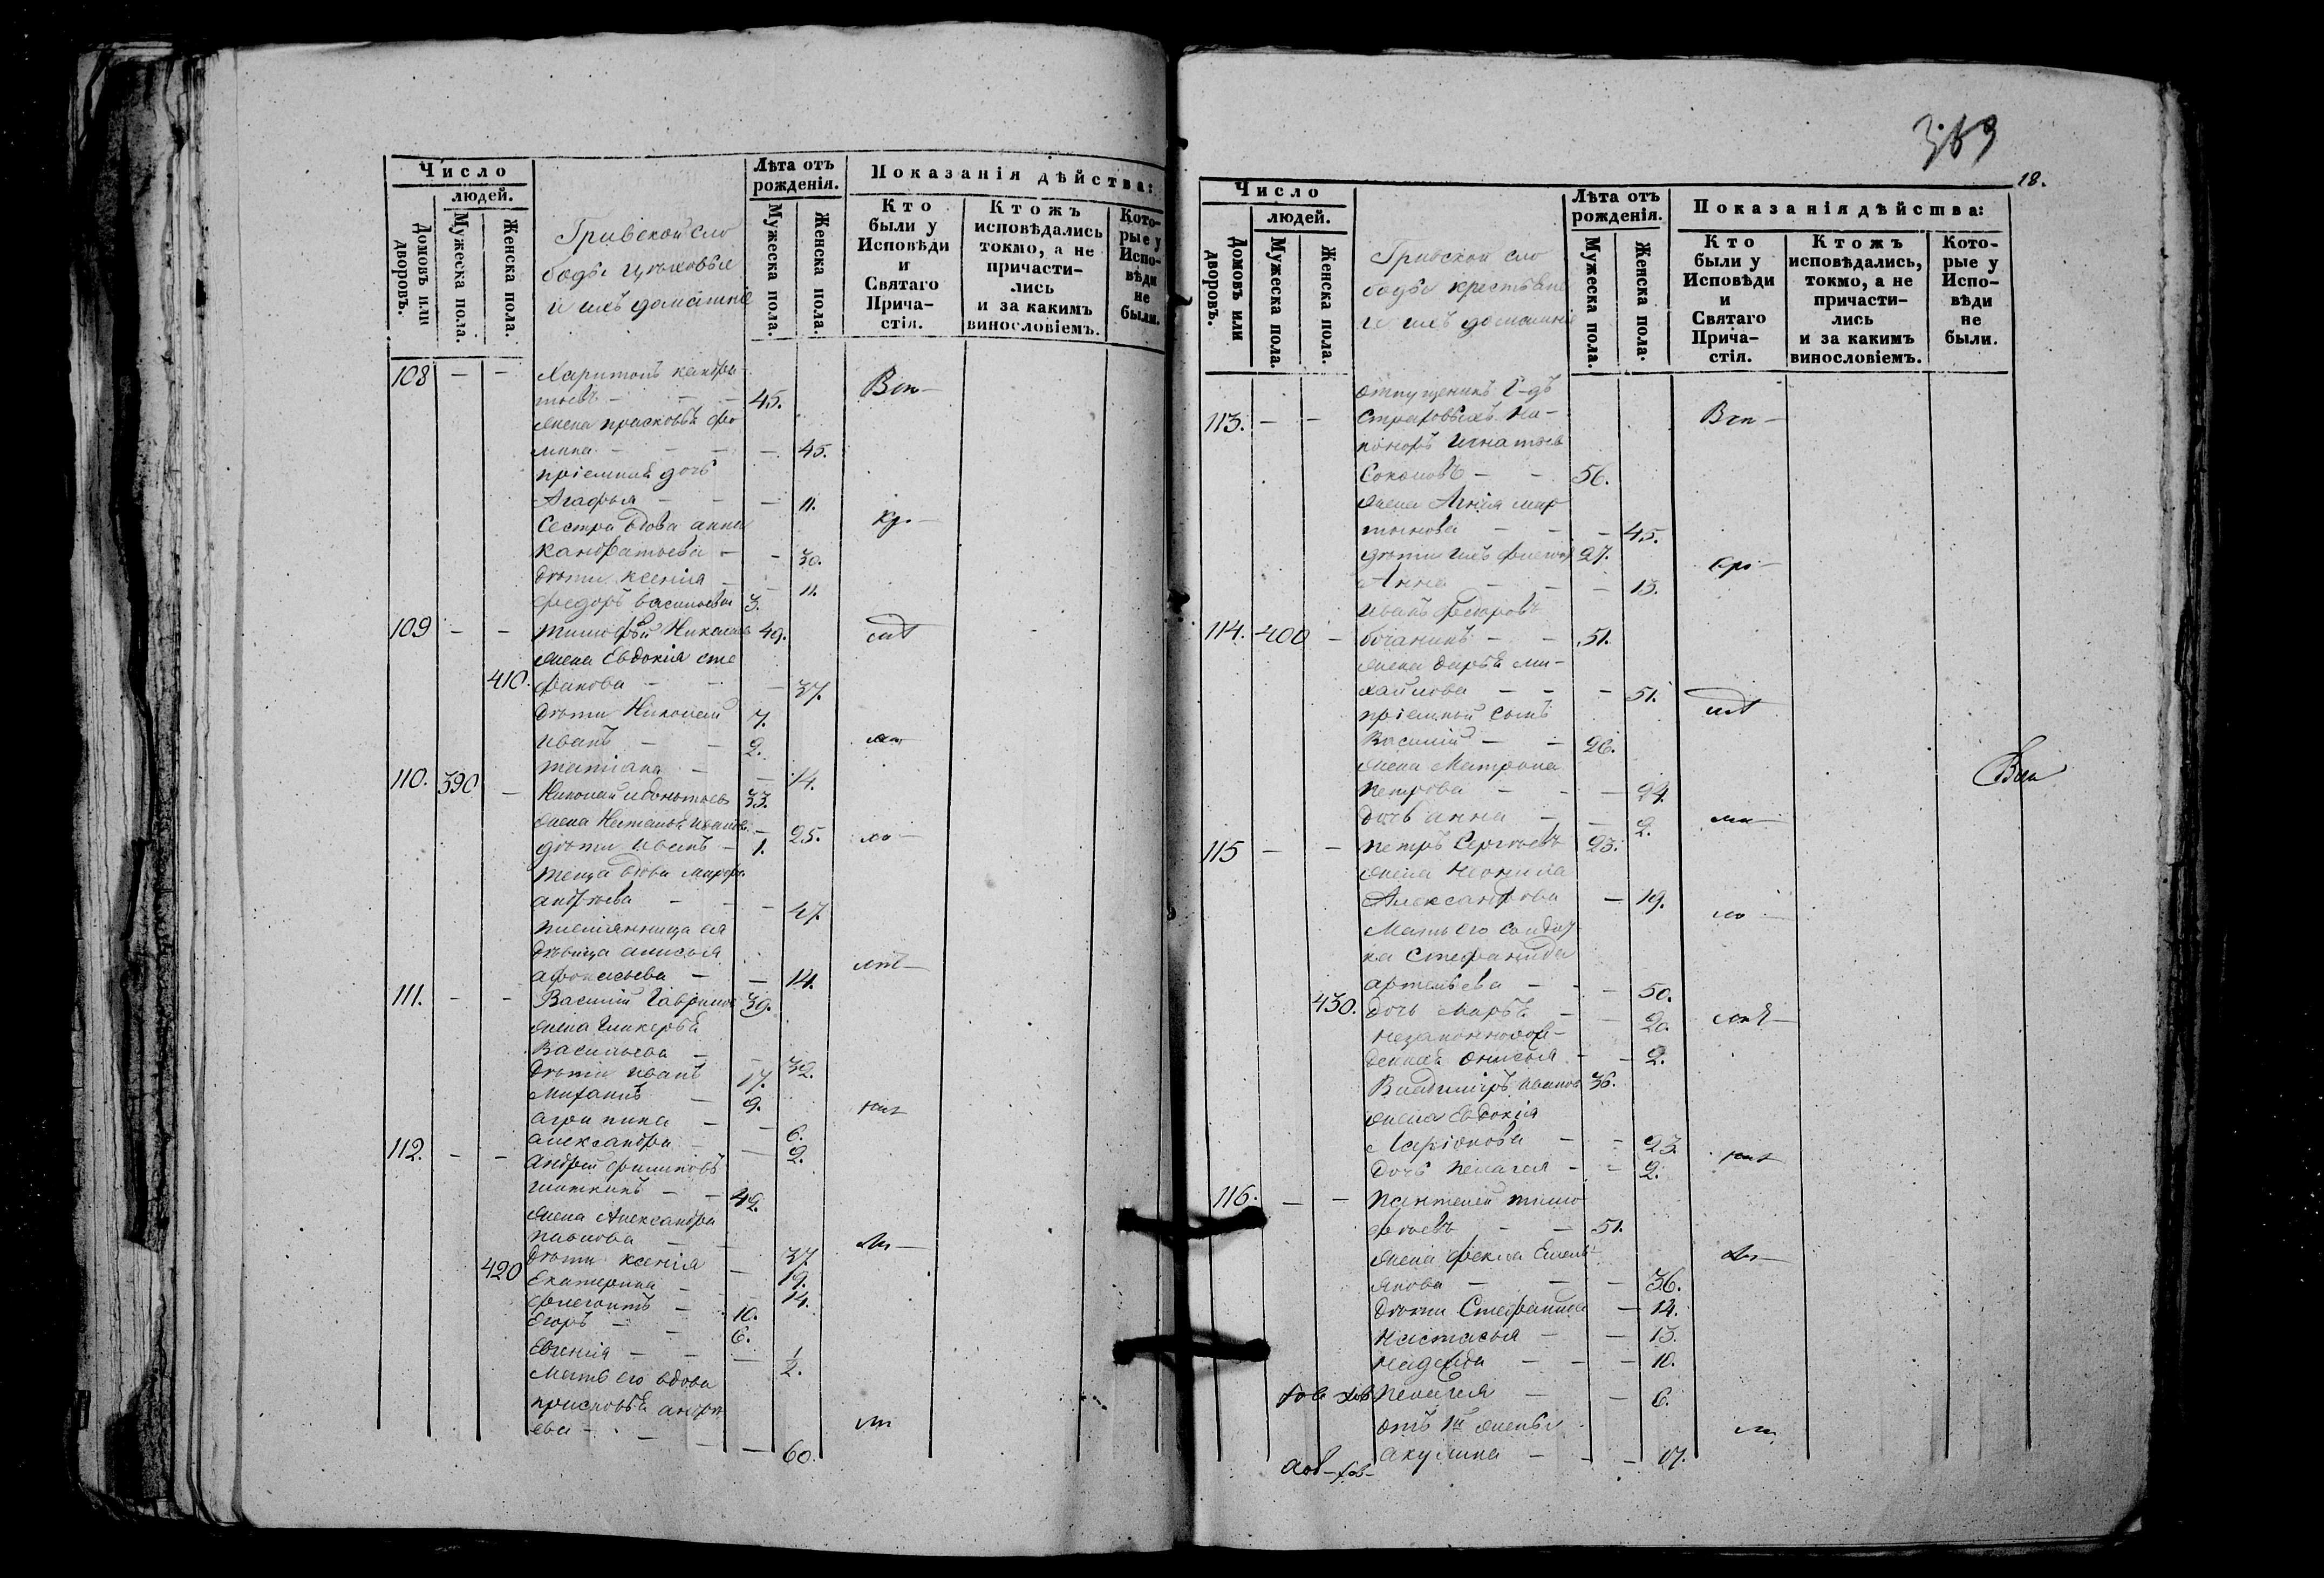 Число
людей.
Домовъ или дворовъ.
Мужеска пола.
Женска пола.
Гривской сло
боды
и ихъ домашніе
Лѣта отъ
рожденія.
Мужеска пола.
Женска пола.
Показанія дѣйства:
Кто
были у
Исповѣди
и
Святаго
Прича-
стія.
Ктожъ
исповѣдались
токмо, а не
причасти-
лись
и за какимъ
винословіемъ.
Кото-
рые у
Испо-
вѣди
не
были.
108 - - Харитонъ кандра
тьевъ - - - 45.
жена прасковья фо
мина - - - - 45.
пріемная дочь
Агафья - - - 11.
Сестра вдова анна
кандратьева - - 30.
дѣти ксенія - - 11.
федоръ васильевъ 3.
109 - - тимофѣй Николаев 49.
жена Евдокія сте
410. фанова - - - 37.
дѣти Николай 7.
иванъ - - 2.
татіана - - 14.
110. 390 - Николай 33.
жена Наталья иванова - 25.
дѣти иванъ - 1.
теща вдова марфа
андреева - - - 47.
племянница ея
дѣвица анисья
афонасьева - - 14.
111. - - Василій Гаврилов 39.
жена гликерья
Васильева - - 32.
дѣти иванъ 17.
михаилъ - 9.
агрипина - - 6.
александра - - 2.
112. - - андрей филиповъ
- - 42.
жена Александра
павлова - - 37.
420 дѣти ксенія - 19.
Екатерина - - 14.
флегонтъ - 10.
Егоръ - - 6.
Евгенія - - - 1/2.
мать его вдова
прасковья андре
ева - - - - 60.
369
18.
Число
людей.
Домовъ или дворовъ.
Мужеска пола.
Женска пола.
Гривской сло
боды крестьяне
и ихъ домашніе
Лѣта отъ
рожденія.
Мужеска пола.
Женска пола.
Показанія дѣйства:
Кто
были у
Исповѣди
и
Святаго
Прича-
стія.
Ктожъ
исповѣдались,
токмо, а не
причасти-
лись
и за какимъ
винословіемъ.
Кото-
рые у
Испо-
вѣди
не
были.
отпущеникъ Г-дъ
113. - - На-
коноръ игнатьев
Соколовъ - - 56.
жена Агнія мар
тынова - - - 45.
дѣти ихъ 27.
Анна - - - 13.
иванъ федоровъ
114. 400 - - - 51.
жена дарья ми-
хайлова - - - 51.
пріемный сынъ
Василій - - 26.
жена Матрона
петрова - - - 24.
дочь анна - - 2.
115 - - петръ Сергѣевъ 23.
жена неонила
Александрова - 19.
Мать его солдат
ка Стефанида
артемьева - - - 50.
430. дочь марья - - 20.
незаконнорож-
денная онисья - - 2.
Владимиръ иванов 36.
жена Евдокія
Ларіонова - - 23.
дочь пелагея - - 2.
116. - - пантелей тимо
фѣевъ - - 51.
жена фекла Емель
янова - - - 36.
дѣти Стефанида - 14.
настасья - - 13.
надежда - - - 10.
пелагея - - 6.
отъ 1й жены
акулина - - - 17.